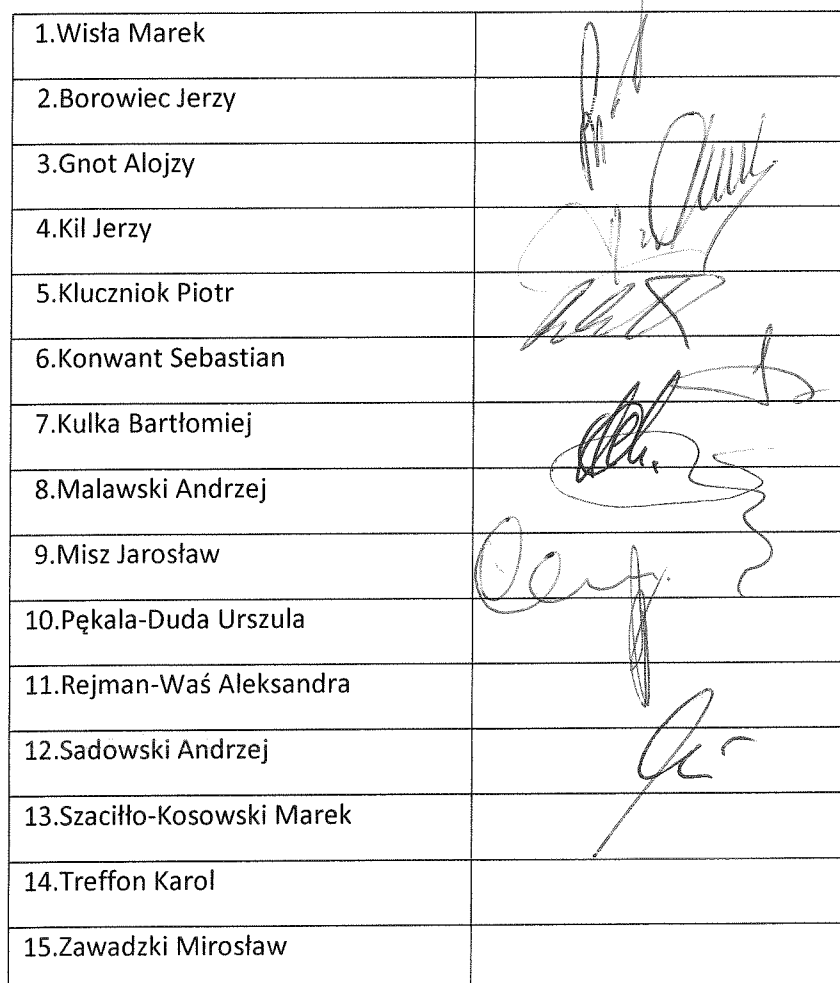 1.Wisła Marek
2.Borowiec Jerzy
3.Gnot Alojzy
4.Kil Jerzy
5.Kluczniok Piotr
6.Konwant Sebastian
7.Kulka Bartłomiej
8.Malawski Andrzej
9.Misz Jarosław
10.Pękala-Duda Urszula
11.Rejman-Waś Aleksandra
12.Sadowski Andrzej
13.Szaciłło-Kosowski Marek
14.Treffon Karol
15.Zawadzki Mirosław